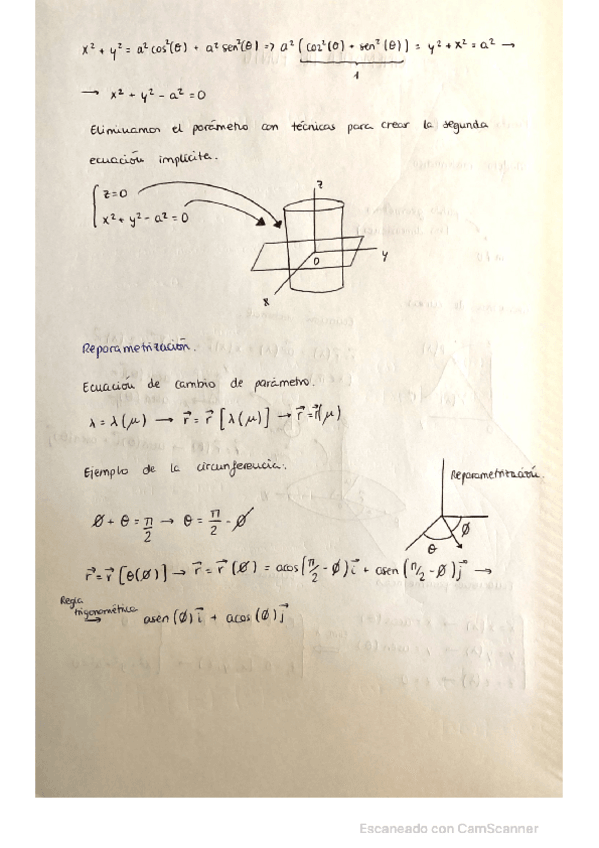 x² + y² = a² cos²(θ) + a² sen²(θ) => a² (cos²(θ) + sen²(θ)) = y² + x² = a² →
1
→ x² + y² - a² = 0
Eliminamos el parámetro con técnicas para crear la segunda
ecuación implícita.
z = 0
x² + y² - a² = 0
z
y
0
x
Reparametrización.
Ecuación de cambio de parámetro.
λ = λ(μ) → r⃗ = r⃗ [λ(μ)] → r⃗ = r⃗(μ)
Ejemplo de la circunferencia.
Reparametrización.
Ø + θ = π/2 → θ = π/2 - Ø
Ø
θ
r⃗ = r⃗ [θ(Ø)] → r⃗ = r⃗ (Ø) = acos(π/2 - Ø) i⃗ + asen(π/2 - Ø) j⃗ →
Regla
trigonométrica
→ asen(Ø) i⃗ + acos(Ø) j⃗
Escaneado con CamScanner